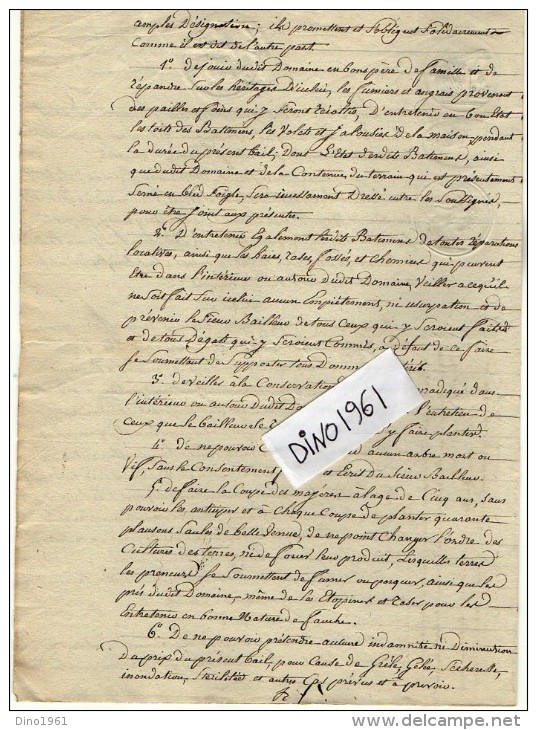 amples Désignation; ils promettent et s'obligent solidairement
Comme il est dit de l'autre part.
1°. de jouir dudit Domaine en bons père de famille et de
répandre sur les héritages d'icelui, les fumiers et engrais provenant
des pailles et foins qui y seront récoltés, d'entretenir en bon état
les toits des Batimens, les volets et jalousies de la maison pendant
la durée du présent bail; dont l'état desdits Batimens, ainsi
que dudit Domaine et de la Contenue du terrain qui est présentement
semé en bled seigle, sera incessamment Dressé entre les soussignés,
pour être joint aux présentes.
2°. D'entretenir Egalement lesdits Batimens de toutes réparations
locatives, ainsi que les haies, rases, fossés, et chemins qui peuvent
être dans l'intérieur ou autour dudit Domaine, veiller à ce qu'il
ne soit fait sur icelui aucun Empiètement, ni usurpation et de
prévenir le Sieur Bailleur de tous ceux qui y seroient faites
et de tous Dégats qui y seroient Commis, à défaut de ce faire
se soumettant de supporter tous Domm
3°. de veiller à la Conservation dans
l'intérieur ou autour dudit Do l'entretien de
Ceux que le bailleur y faire planter.
4°. de ne pouvoir C aucun arbre mort ou
Vif, sans le Consentement et Ecrit du Sieur Bailleur.
5°. de faire la Coupe des à l'age de Cinq ans, sans
pouvoir les anticiper et à Cheque Coupe de planter quarante
plansons saules de belle venue, de ne point Changer l'ordre des
Cultures des terres, ni de leur produit, lesquelles terres
les preneurs se soumettent de fumer ou parquer, ainsi que les
prés dudit Domaine, même de les Etopiner et raser pour les
Entretenir en bonne Nature de fauche.
6°. De ne pouvoir prétendre aucune indamnité ni Diminution
Du prix du présent bail, pour Cause de Grêle, Gelée, Sécheresse,
inondation, stérilités et autres Cas prévus et à prévoir.
DINO1961
Dino1961
http://www.delcampe.net